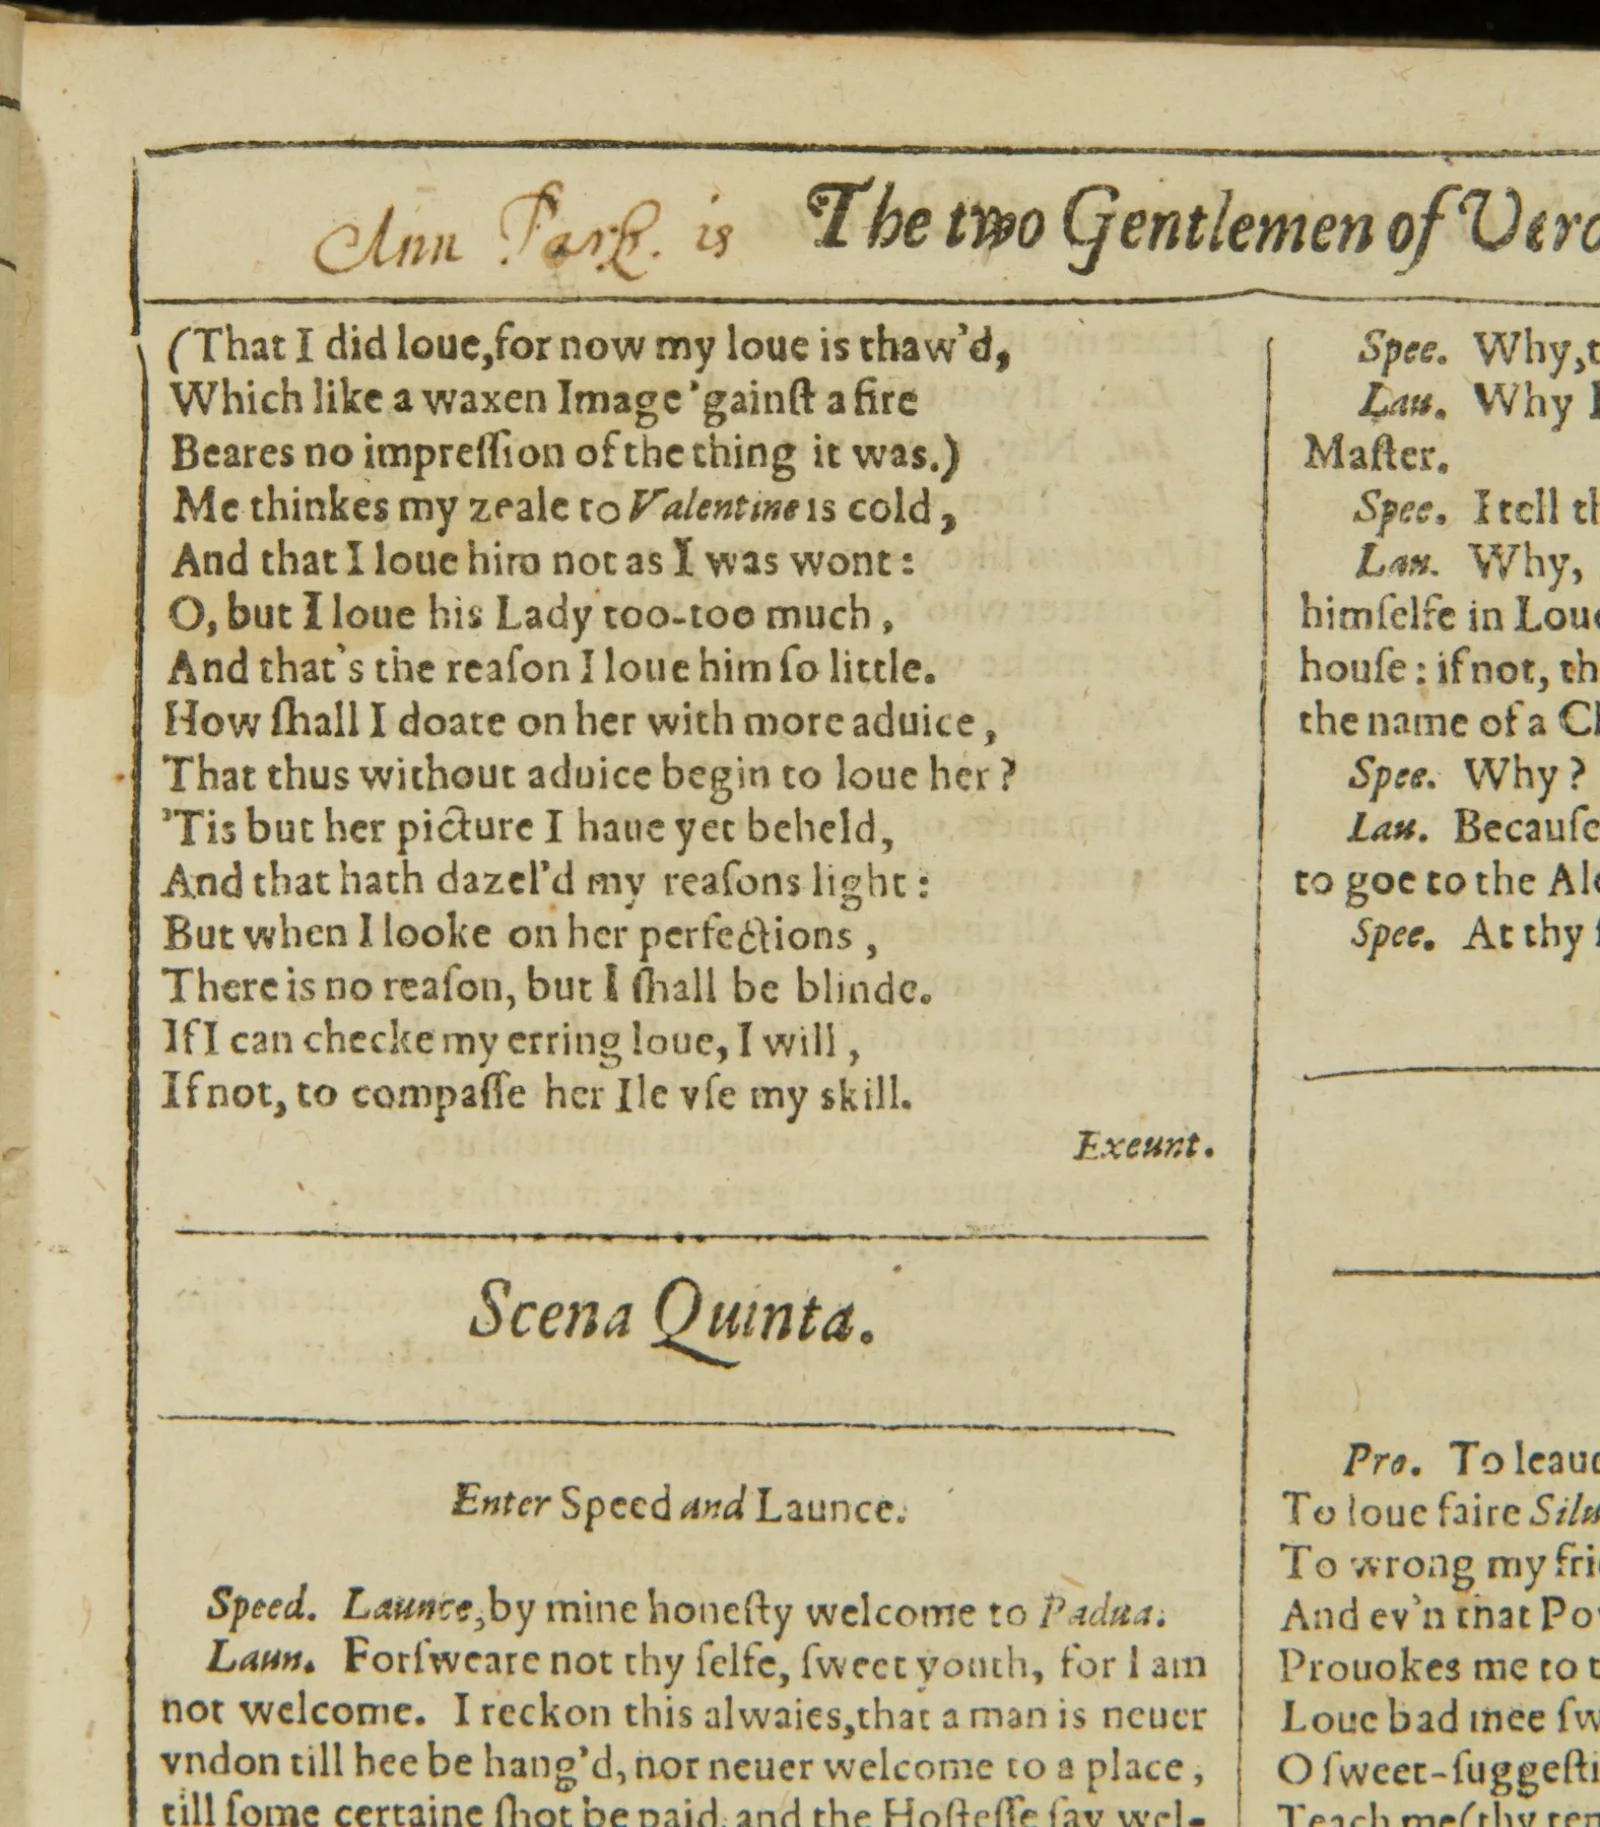 Ann Park. is The two Gentlemen of Vero
(That I did loue,for now my loue is thaw'd,
Which like a waxen Image 'gainſt a fire
Beares no impreſſion of the thing it was.)
Me thinkes my zeale to Valentine is cold,
And that I loue him not as I was wont:
O, but I loue his Lady too-too much,
And that's the reaſon I loue him ſo little.
How ſhall I doate on her with more aduice,
That thus without aduice begin to loue her?
'Tis but her picture I haue yet beheld,
And that hath dazel'd my reaſons light:
But when I looke on her perfections,
There is no reaſon, but I ſhall be blinde.
If I can checke my erring loue, I will,
If not, to compaſſe her Ile vſe my skill.
Exeunt.
Scena Quinta.
Enter Speed and Launce.
Speed. Launce, by mine honeſty welcome to Padua.
Laun. Forſweare not thy ſelfe, ſweet youth, for I am
not welcome. I reckon this alwaies, that a man is neuer
vndon till hee be hang'd, nor neuer welcome to a place,
till ſome certaine ſhot be paid, and the Hoſteſſe ſay wel-
Spee. Why,
Lau. Why
Maſter.
Spee. I tell
Lau. Why,
himſelfe in Loue
houſe: if not,
the name of a
Spee. Why?
Lau. Becauſe
to goe to the Ale
Spee. At thy
Pro. To leaue
To loue faire
To wrong my
And ev'n that
Prouokes me to
Loue bad mee
O ſweet-ſuggeſti
Teach me (thy